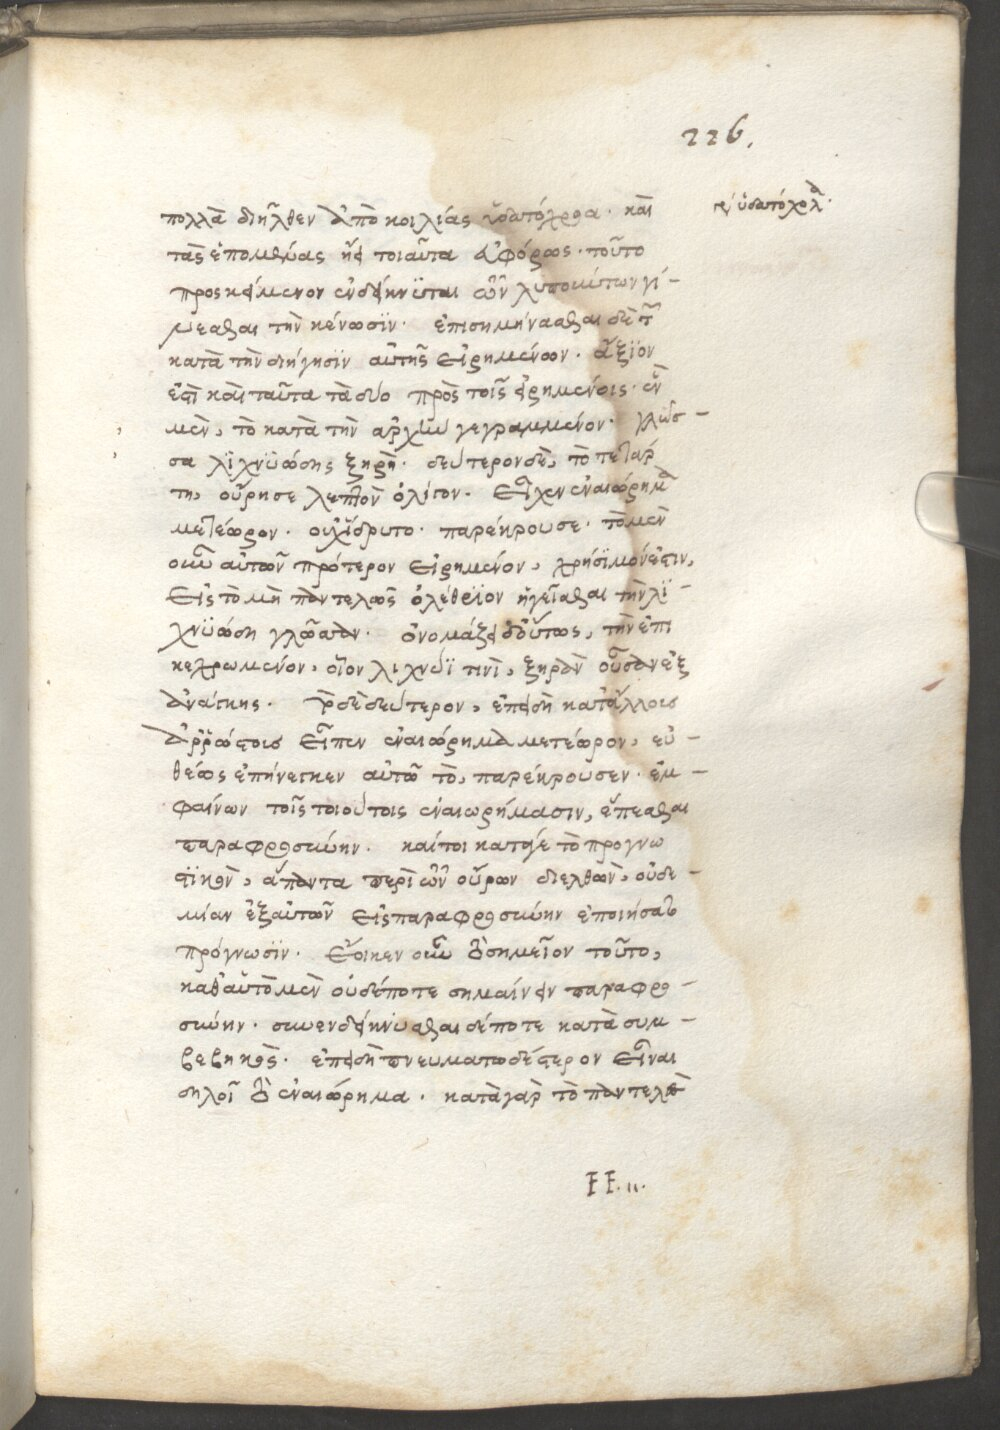 226.
πολλὰ διῆλθεν ἀπὸ κοιλίας ὑδατόχροα· καὶ
ὑδατόχολα·
τὰς ἑπομένας ἤει τοιαῦτα ἀφόρως· τοῦτο
προσκείμενον ἐνδείκνϋται τῶν λυποιώτων γί-
νεσθαι τὴν κένωσϊν· ἐπισημήνασθαι δὲ τ
κατὰ τὴν διήγησϊν αὐτῆς εἰρημένων· ἄξϊον
ἐστὶ καὶ ταῦτα τὰ δύο πρὸς τοῖς εἰρημένοις· ἓν
μὲν, τὸ κατὰ τὴν ἀρχὴν γεγραμμένον· γλῶσ-
σα λϊγνϋώδης ξηρή· δεύτερον δὲ, τὸ τετάρ
τη, οὔρησε λεπτὸν ὀλίγον· εἶχεν ἐναιώρημα
μετέωρον· οὐχ ἵδρυτο· παρέκρουσε· τὸ μὲν
οὖν αὐτῶν πρότερον εἰρημένον, χρήσϊμόν ἐστιν,
εἰς τὸ μὴ παντελῶς ὀλέθριον ἡγεῖσθαι τὴν λϊ-
χνϋώδη γλῶτταν· ὀνομάζει δ' οὕτως, τὴν ἐπι
κεχρωμένον, οἷον λιχνύϊ τινὶ, ξηρὰν οὖσαν ἐξ
ἀνάγκης· τὸ δὲ δεύτερον, ἐπειδὴ κατ' ἄλλοις
ἀῤῥώστοις εἶπεν ἐναιώρημα μετέωρον, εὐ-
θέως ἐπήνεγκεν αὐτῶ τὸ, παρέκρουσεν· ἐμ-
φαίνων τοῖς τοιούτοις ἐναιωρήμασιν, ἕπεσθαι
παραφροσύνην· καίτοι κατά γε τὸ προγνω
στϊκὸν, ἅπαντα περὶ τῶν οὔρων διελθὼν, οὐδε-
μίαν ἐξ αὐτῶν εἰς παραφροσύνην ἐποιήσατο
πρόγνωσϊν· ἔοικεν οὖν τὸ σημεῖον τοῦτο,
καθ' αὑτὸ μὲν οὐδέποτε σημαίνειν παραφρο-
σύνην· συνενδείκνυσθαι δέ ποτε κατὰ συμ-
βεβηκὸς· ἐπειδὴ πνευματωδέστερον εἶναι
δηλοῖ τὸ ἐναιώρημα· κατὰ γὰρ τὸ παντελὲς
FF.ιι.